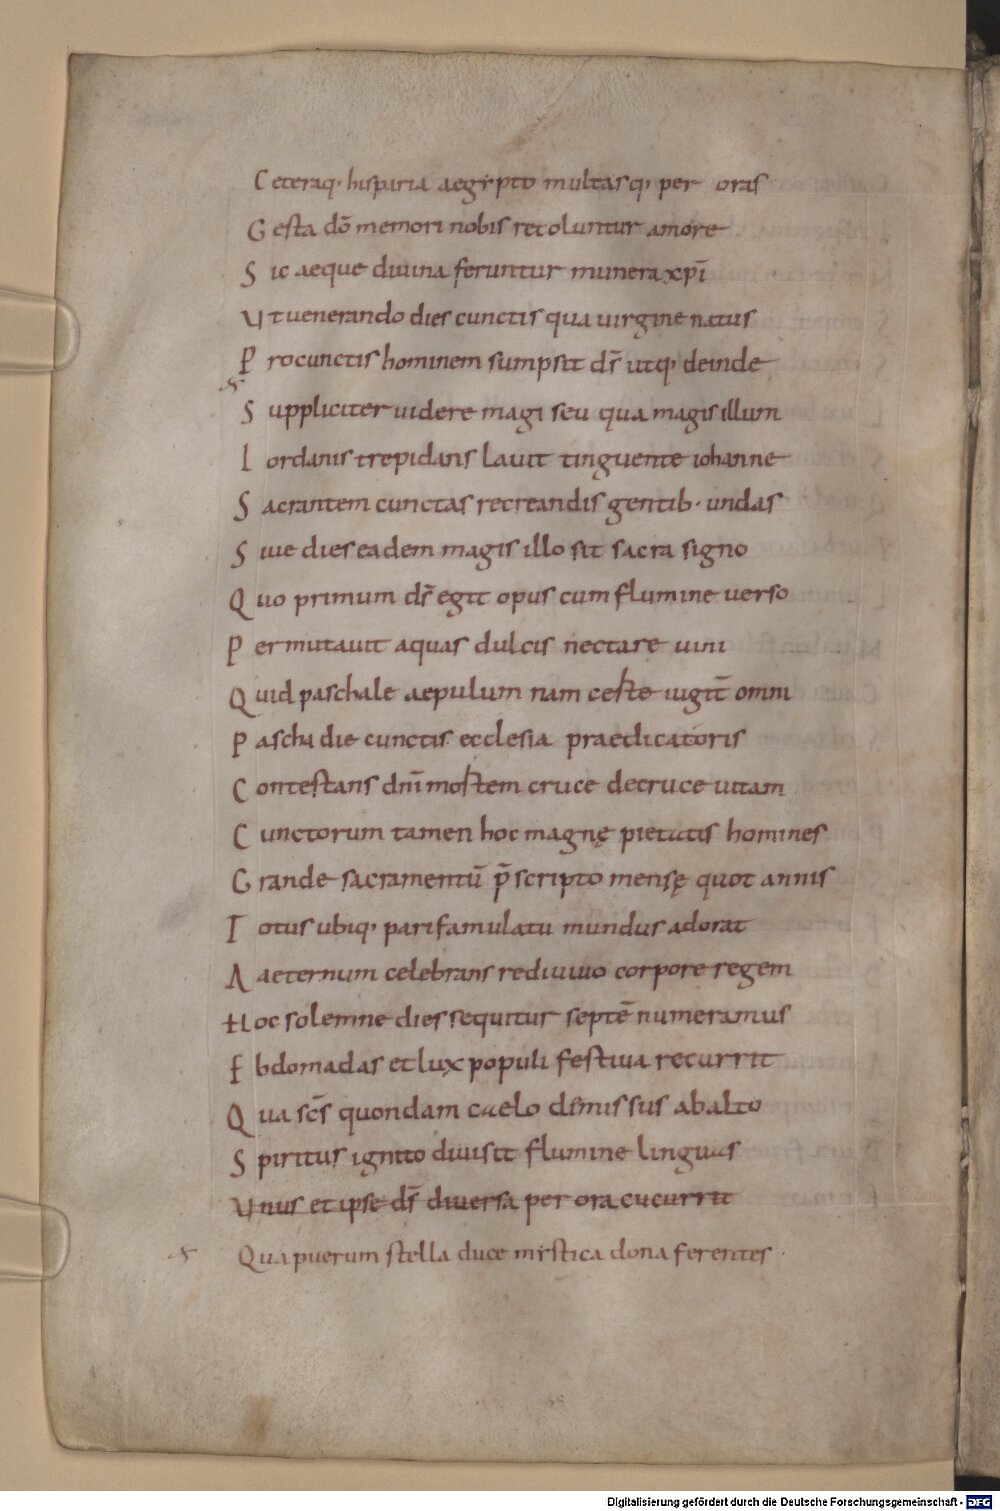 Ceteraq· hisparia aegypto multasq· per oras
Gesta dō memori nobis recoluntur amore
Sic aeque diuina feruntur munera xpī
Ut uenerando dies cunctis qua uirgine natus
Pro cunctis hominem sumpsit ds̄ utq· deinde
Suppliciter uidere magi seu qua magis illum
Iordanis trepidans lauit tinguente iohanne
Sacrantem cunctas recreandis gentib· undas
Siue dies eadem magis illo sit sacra signo
Quo primum ds̄ egit opus cum flumine uerso
Permutauit aquas dulcis nectare uini
Quid paschale aepulum nam ceste iugit̄ omni
Pascha die cunctis ecclesia praedicatoris
Contestans dnī mortem cruce de cruce uitam
Cunctorum tamen hoc magnę pietatis homines
Grande sacramentū p̄scripto mensę quot annis
Totus ubiq· pari famulatu mundus adorat
Aaeternum celebrans rediuiuo corpore regem
Hoc solemne dies sequitur septē numeramus
Ebdomadas et lux populi festiua recurrit
Qua scs̄ quondam caelo dimissus ab alto
Spiritus ignito diuisit flumine linguas
Unus et ipse ds̄ diuersa per ora cucurrit
Qua puerum stella duce mystica dona ferentes ·
Digitalisierung gefördert durch die Deutsche Forschungsgemeinschaft - DFG